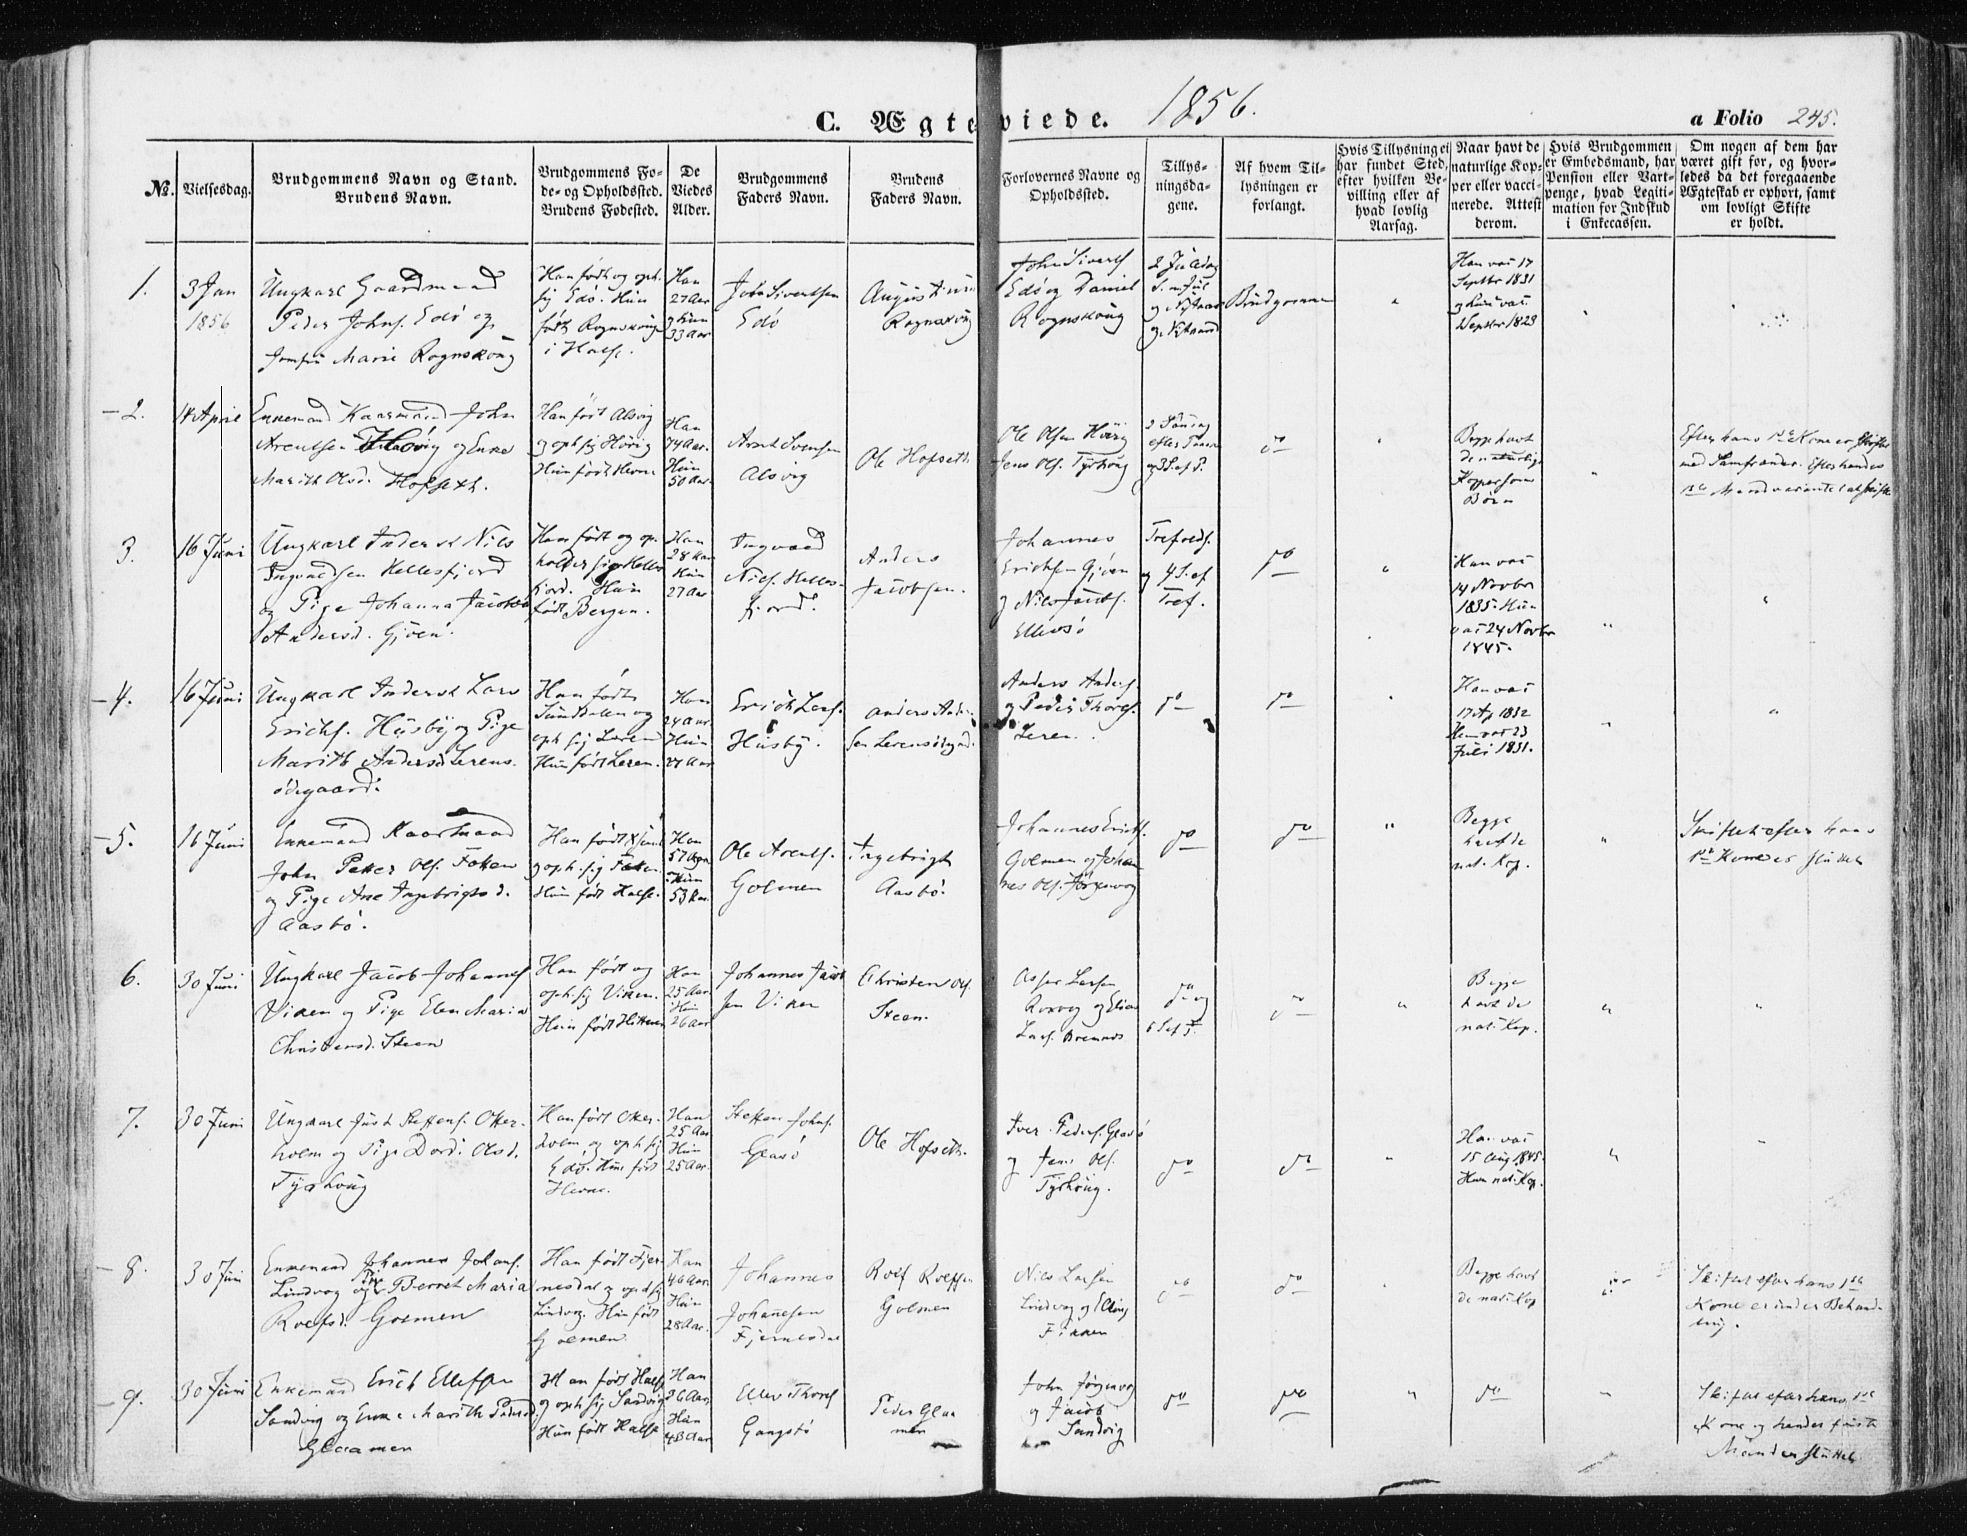 C. Ægteviede. 1856.
a Folio 245.
No.
Vielsesdag.
Brudgommens Navn og Stand.
Brudens Navn.
Brudgommens Fo-
de- og Opholdssted.
Brudens Fødested.
De
Viedes
Alder.
Brudgommens
Faders Navn.
Brudens
Faders Navn.
Forlovernes Navne og
Opholdssted.
Tillys-
ningsda-
gene.
Af hvem Til-
lysningen er
forlangt.
Hvis Tillysning ei
har fundet Sted,
efter hvilken Be-
villing eller af
hvad lovlig
Aarsag.
Naar havt de
naturlige Kop-
per eller vacci-
nerede. Attest
derom.
Hvis Brudgommen
er Embedsmand, har
Pension eller Vart-
penge, hvad Legiti-
mation for Indskud
i Enkecassen.
Om nogen af dem har
været gift før, og hvor-
ledes da det foregaaende
Ægteskab er ophørt, samt
om lovligt Skifte
er holdt.
1.
3 Jan
1856
Ungkarl Gaardmand
Peder Johns. Edø og
Jomfru Marie Rognskoug
Han født og oph.
sig Edø. Hun
født Rognskoug
i Halse.
Han
27 Aar
og Hun
33 Aar
John Sivertsen
Edø
Rognskoug
John Siverts
Edø og Daniel
Rognskoug
2 Juledag
og Nytaar
Brudgommen
Han vac 17
Septbr 1831
og Hun vac.
Septbr 1823
2.
14 April
Enkemand Kaarmand John
Arentsen og Enke
Marith Olsd. Hofseth.
Han født Alsvig
og oph sig Hövig
Hun født Hevne
Han
74 Aar.
Hun
50 Aar.
Arnt Svensen
Alsvig
Ole Hofseth
Ole Olsen Hövig
Jens Ols. Tyrhoug
2 Søndag
efter Paaske
og 3 S. ef P.
do
Begge havt
de naturlige
Kopper som
Børn
Efter hans 1ste Kone er skiftet
med Samfrænder. Efter hendes
1ste Mand var intet at skifte
3.
16 Juni
Ungkarl Inderst Nils
Ingvaldsen Hellesfjord
og Pige Johanna Jacobea
Andersd. Gjöen.
Han født og op-
holder sig Helles
fjord. Hun
født Bergen.
Han
28 Aar
Hun
27 Aar
Ingvald
Niels. Helles-
fjord.
Anders
Jacobsen.
Johannes
Erichsen Gjöen
og Nils Jacobs.
Ellevsö
Trefolds.
og 4 S. ef
Tref.
do
Han vac
14 Novbr
1835. Hun
vac 24 Novbr
1845.
4.
16 Juni
Ungkarl Inderst Lars
Erichs. Husby og Pige
Marith Andersd. Lerens-
ödegaard.
Han født
Sundalen og
oph sig Leren
Hun født Leren.
Han
24 Aar.
Hun
27 Aar
Erich Lars.
Husby.
Anders Ander-
sen Lerensödegrd.
Anders Anders.
og Peder Thores.
Leren.
do
do
Han vac
17 Ap 1832
Hun vac 23
Juli 1831.
5.
16 Juni
Enkemand Kaarmand
John Petter Ols. Foten
og Pige Ane Ingebrigtsd.
Aasbö.
Han født
og oph. sig Foten.
Hun født Halse.
Han
57 Aar
Hun
53 Aar.
Ole Arents.
Golmen
Ingebrigt
Aasbö.
Johannes Erichs.
Golmen og Johan
nes Ols. Jörgenvog
do
do
Begge
havt de
nat. Kop.
Skiftet efter hans
1ste Kone er sluttet
6.
30 Juni
Ungkarl Jacob Johannes
Viken og Pige Elen Maria
Christensd. Steen
Han født og
oph sig Viken.
Hun født Hitteren
Han
25 Aar.
Hun
26 Aar
Johannes Jacob
sen Viken
Christen Ols.
Steen.
Asser Larsen
Roxvog og Elias
Lars. Bremnes
do og
6 S ef T.
do
Begge
havt de
nat. Kop.
7.
30 Juni
Ungkarl Just Steffens. Otter-
holm og Pige Dordi Olsd.
Tyrhoug
Han født Otter-
holm og oph sig
Edö. Hun født
Hevne.
Han
25 Aar
Hun
25 Aar.
Steffen Johns.
Glasö
Ole Hofseth.
Iver Peders. Glasö
og Jens Ols.
Tyrhoug.
do
do
Han vac
15 Aug 1845.
Hun nat. Kop.
8.
30 Juni
Enkemand Johannes Johans.
Lindvog og Pige Berret Maria
Roefsd. Golmen
Han født Fjer-
nesdal og oph sig
Lindvog. Hun født
Golmen.
Han
46 Aar.
Hun
28 Aar.
Johannes
Johannesen
Fjernesdal
Roef Roefsen
Golmen
Nils Larsen
Lindvog og Elling
Fikken
do
do
Begge havt
de nat. Kop
Skiftet efter hans 1ste
Kone er under Behand-
ling.
9.
30 Juni
Enkemand Erich Ellefsen
Sandvig og Enke Marith Pedersd.
Glaamen
Han født Halse
og oph sig Sandvig
Hun født Halse
Han
36 Aar
Hun
43 Aar
Ellev Thores
Gangstö
Peder Glaa
men
John Jörgenvog
og Jacob
Sandvig
do
do
do
Skiftet efter hans 1ste
Kone og hendes første
Mand er sluttet.